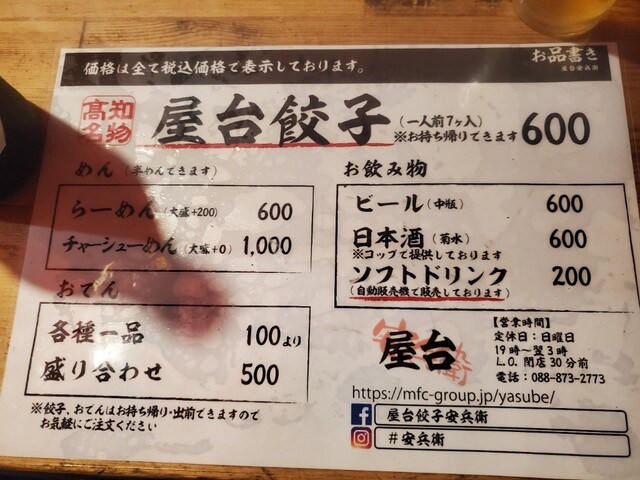 価格は全て税込価格で表示しております。
お品書き
屋台安兵衛
高知
名物
屋台餃子
(一人前7ヶ入)
※お持ち帰りできます
600
めん(半めんできます)
らーめん(大盛+200) 600
チャーシューめん(大盛+0) 1,000
おでん
各種一品 100より
盛り合わせ 500
※餃子、おでんはお持ち帰り・出前できますので
お気軽にご注文ください
お飲み物
ビール(中瓶) 600
日本酒(菊水) 600
※コップで提供しております
ソフトドリンク 200
(自動販売機で販売しております)
屋台
【営業時間】
定休日:日曜日
19時~翌3時
L.O. 閉店30分前
電話:088-873-2773
https://mfc-group.jp/yasube/
屋台餃子安兵衛
#安兵衛